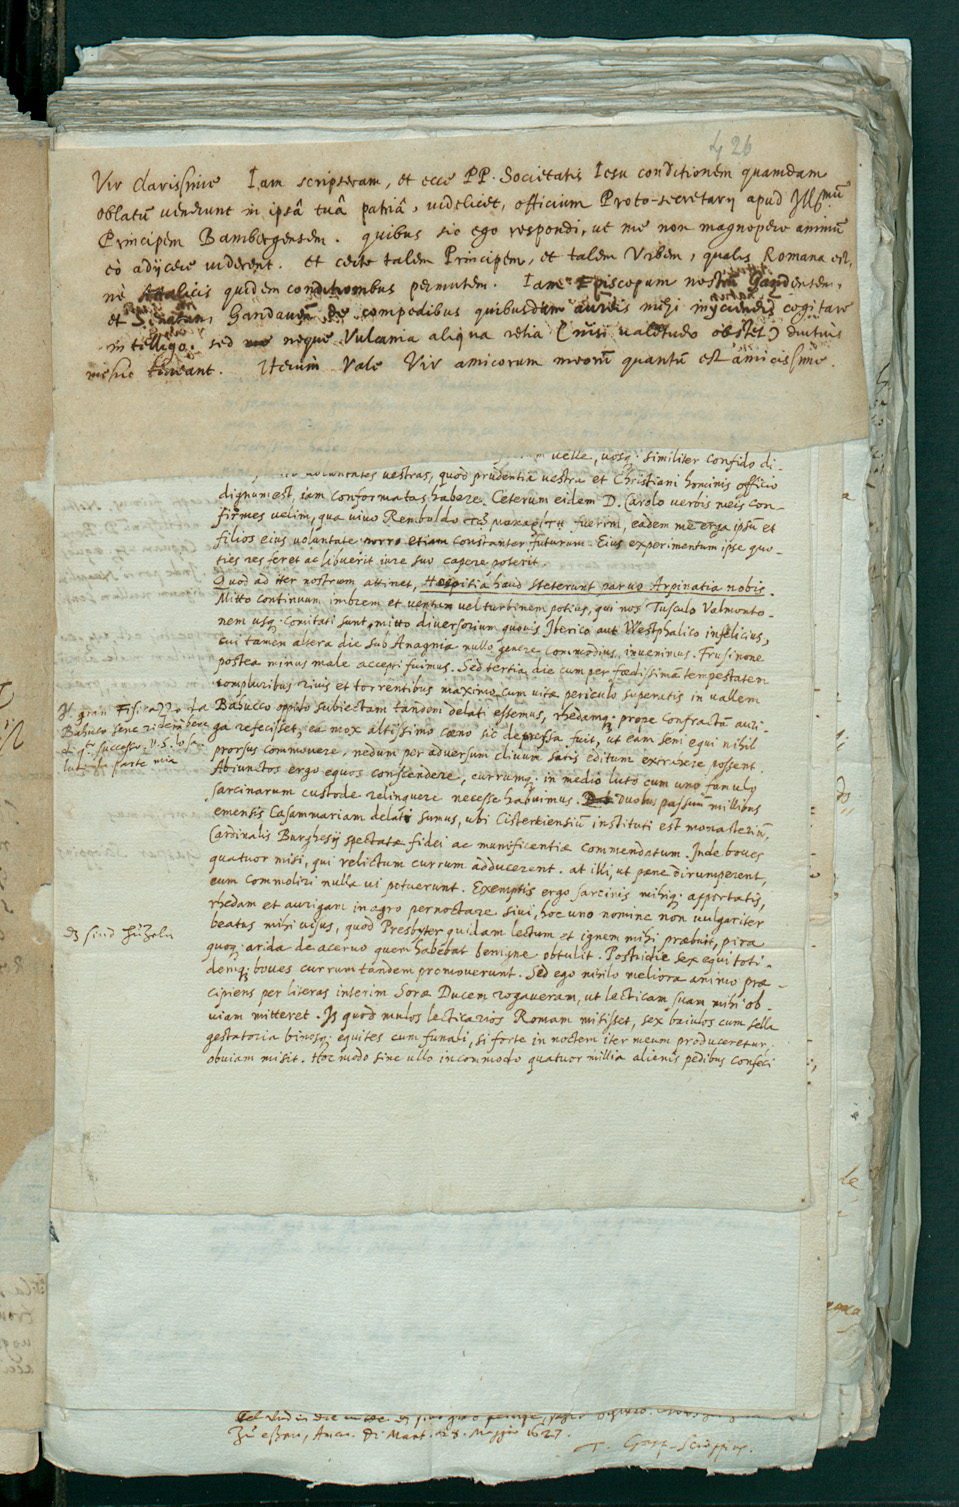 426
Vir clarissime Iam scripseram, et ecce PP. Societatis Iesu conditionem quamdam
oblatū venerunt in ipsâ tuâ patriâ, videlicet, officium Proto-secretarij apud Illsmū
Principem Bambergensem. quibus sic ego respondi, ut me non magnopere animū
eò adijcere viderent. et certe talem Principem, et talem Urbem, qualis Romana est,
ne Attalicis quidem conditionibus permutem. Iam Episcopum nostrū Gandensem,
et Senatum Gandavensem de compedibus quibusdam aureis mihi inijciendis cogitare
intelligo. sed neque Vulcania aliqua retia (nisi valetudo obstet) diutius
me hic teneant. Iterum Vale Vir amicorum meorū quantū est amicissime.
velle, vosq; similiter confido di-
voluntates vestras, quòd prudentia vestra et Christiani hominis officio
dignum est, iam conformatas habere. Ceterum eidem D. Carolo verbis meis con-
firmes velim, qua vivo Remboldo τῷ μακαρίτῃ fuerim, eadem me erga ipsū et
filios eius voluntate porro etiam constanter futurum. Eius experimentum ipse quo-
ties res feret ac libuerit iure suo capere poterit.
Quod ad iter nostrum attinet, Hospitia haud steterunt parvo Arpinatia nobis.
Mitto continuum imbrem et ventum vel turbinem potius, qui nos Tusculo Valmonto-
nem usq; comitati sunt, mitto diversorium quovis Iberico aut Westphalico infelicius,
cui tamen altera die sub Anagnia nullo genere commodius invenimus. Frusinone
postea minus male accepti fuimus. Sed tertia die cum per fœdissimā tempestatem
compluribus rivis et torrentibus maximo cum vitæ periculo superatis in vallem
Babucco oppido subiectam tandem delati essemus, rhedamq; prope confractā auri-
ga refecisset, ea mox altissimo cœno sic depressa fuit, ut eam seni equi nihil
prorsus commovere, nedum per adversum clivum satis editum extrahere possent.
Abiunctos ergo equos conscendere, currumq; in medio luto cum uno famulo
sarcinarum custode relinquere necesse habuimus. duobus passuum millibus
emensis Casammariam delati sumus, ubi Cisterciensiū instituti est monasteriū,
Cardinalis Burghesij spectatæ fidei ac munificentiæ commendatum. Inde boves
quatuor misi, qui relictum currum adducerent. at illi, ut pene dirumperent,
eum commoliri nulla vi potuerunt. Exemptis ergo sarcinis mihiq; apportatis,
rhedam et aurigam in agro pernoctare sivi, hoc uno nomine non vulgariter
beatus mihi visus, quod Presbyter quidam lectum et ignem mihi præbuit, pira
quoq; arida de acervo quem habebat benigne obtulit. Postridie sex equi toti-
demq; boves currum tandem promoverunt. Sed ego nihilo meliora animo præ-
cipiens per literas interim Soræ Ducem rogaveram, ut lecticam suam mihi ob-
viam mitteret. Is quod mulos lecticarios Romam misisset, sex baiulos cum sella
gestatoria binosq; equites cum funali, si forte in noctem iter meum produceretur,
obviam misit. Hoc modo sine ullo incommodo quatuor millia alienis pedibus confeci
lutosa parte mia
1627.